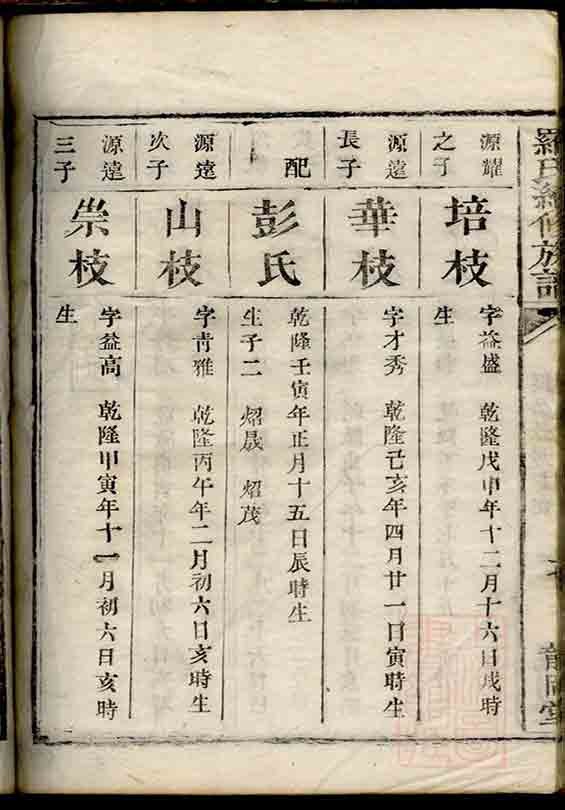 羅氏續修族譜
源耀
之子
培枝
字益盛 乾隆戊申年十二月十六日戌時
生
源遠
長子
華枝
字才秀 乾隆己亥年四月廿一日寅時生
配
彭氏
乾隆壬寅年正月十五日辰時生
生子二 炤晟 炤茂
源遠
次子
山枝
字青雅 乾隆丙午年二月初六日亥時生
源遠
三子
崇枝
字益高 乾隆甲寅年十一月初六日亥時
生